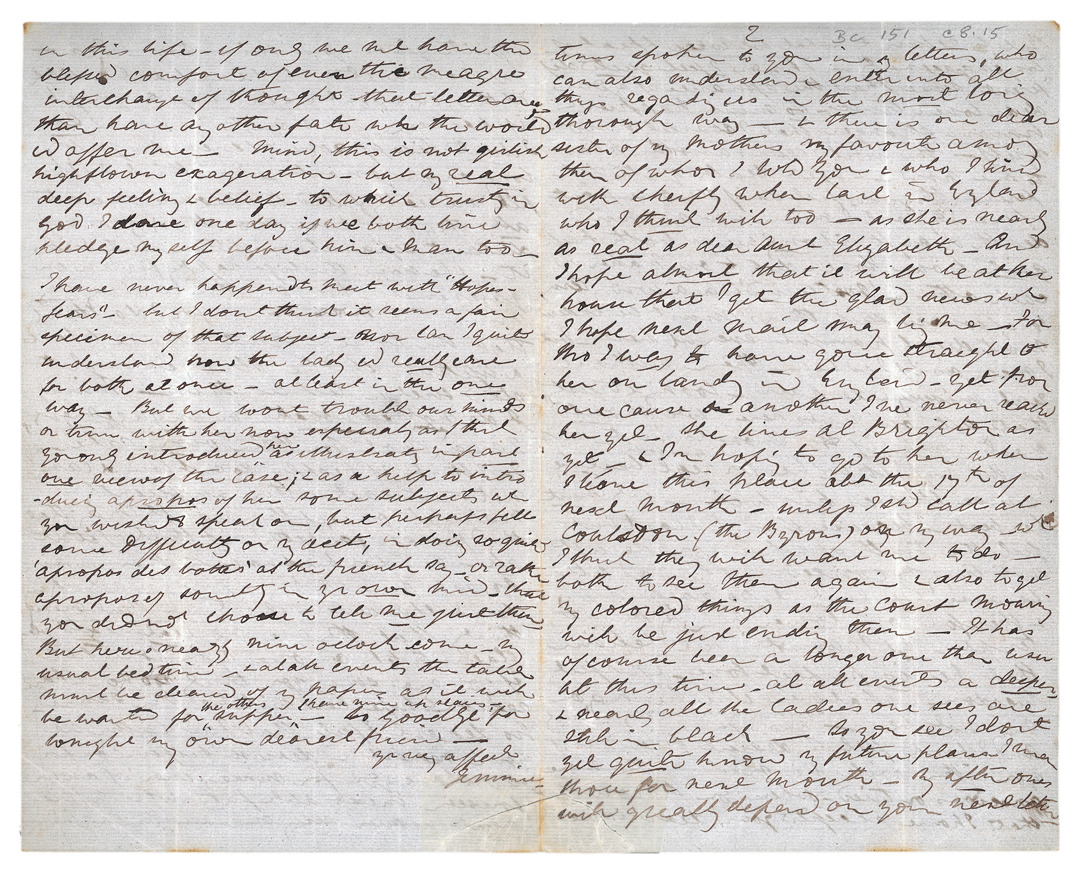 in this life - if only we will have the
blessed comfort of even the meagre
interchange of thought that letters are
than have any other fate wh the world
cd offer me - Mind, this is not girlish
highflown exageration - but my real
deep feeling & belief - to which trusting in
God I dare one day if we both live
pledge myself before him & man too -
I have never happend to meet with "Hopes &
fears" - but I dont think it seems a fair
specimen of that subject - nor can I quite
understand how the lady cd really care
for both at once - at least in the one
way - But we wont trouble our minds
or time with her now especially as I think
you only introduced her as illustrating in part
one view of the case; & as a help to intro
-ducing apropos of her some subjects wh
you wished to speak on, but perhaps felt
some difficulty or in doing so quite
'apropos des bottes' as the french say - or rather
apropos of something in yr own mind - that
you did not choose to tell me just then
But here is nearly nine oclock come - my
usual bedtime - & at all events the table
must be cleared of my papers as it will
be wanted for the others supper - I have mine up stairs - so goodbye for
tonight my own dearest friend -
yr very affecte
Jemima
2
BCa 151 c8.15
times spoken to you in my letters, who
can also understand & enter into all
things regarding us in the most loving
thorough way - & there is one dear
sister of my Mothers my favourite among
them of whom I told you & who I lived
with chiefly when last in England
who I think will too - as she is nearly
as real as dear Aunt Elizabeth - And
I hope almost that it will be at her
house that I get the glad news wh
I hope next mail may bring me - For
tho I was to have gone straight to
her on landing in England - yet from
one cause or another I've never reached
her yet - She lives at Brighton as
yet - & I'm hoping to go to her when
I leave this place abt the 17th of
next month - unless I shd call at
Coulsdon (the Byrons) on my way wh
I think they will want me to do -
both to see them again & also to get
my colored things as the Court mourning
will be just ending then - It has
of course been a longer one than usual
at this time - at all events a deeper
& nearly all the ladies one sees are
still in black - So you see I dont
yet quite know my future plans I mean
those for next month - my after ones
will greatly depend on your next letter